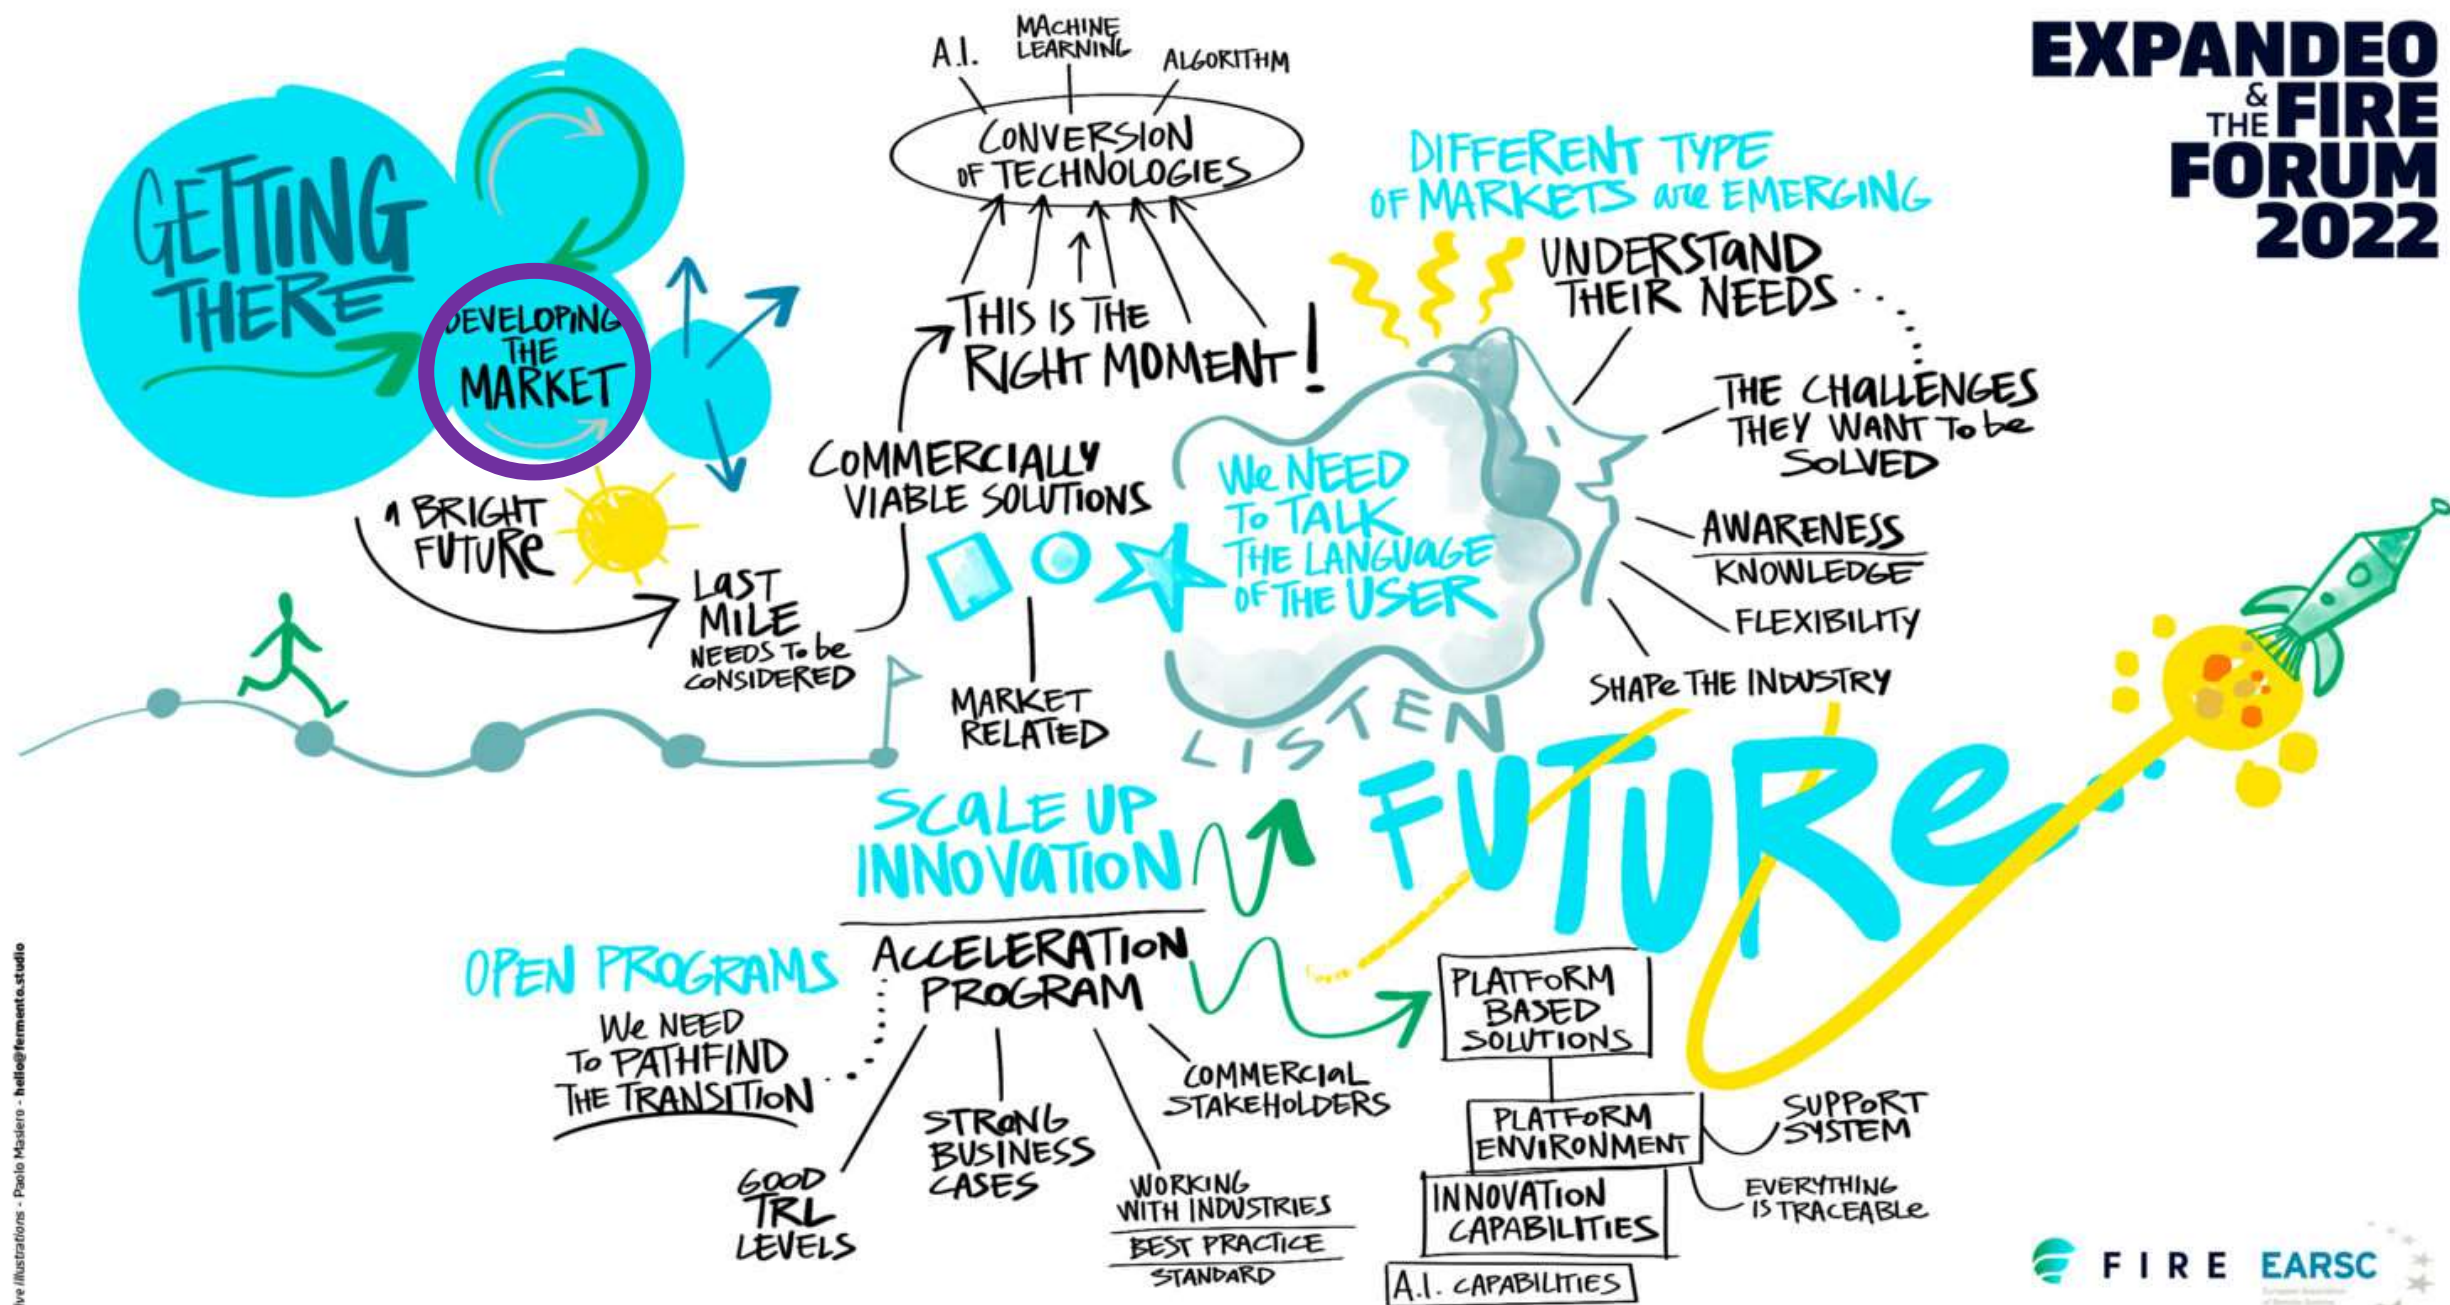 EXPANDEO
& THE FIRE
FORUM
2022
GETTING
THERE
DEVELOPING
THE
MARKET
A BRIGHT
FUTURE
LAST
MILE
NEEDS To be
CONSIDERED
COMMERCIALLY
VIABLE SOLUTIONS
MARKET
RELATED
THIS IS THE
RIGHT MOMENT!
A.I.
MACHINE
LEARNING
ALGORITHM
CONVERSION
OF TECHNOLOGIES
DIFFERENT TYPE
OF MARKETS are EMERGING
UNDERSTAND
THEIR NEEDS
THE CHALLENGES
THEY WANT To be
SOLVED
AWARENESS
KNOWLEDGE
FLEXIBILITY
SHAPE THE INDUSTRY
We NEED
To TALK
THE LANGUAGE
OF THE USER
LISTEN
FUTURe
SCALE UP
INNOVATION
ACCELERATION
PROGRAM
OPEN PROGRAMS
We NEED
To PATHFIND
THE TRANSITION
GOOD
TRL
LEVELS
STRONG
BUSINESS
CASES
WORKING
WITH INDUSTRIES
BEST PRACTICE
STANDARD
COMMERCIAL
STAKEHOLDERS
PLATFORM
BASED
SOLUTIONS
PLATFORM
ENVIRONMENT
SUPPORT
SYSTEM
EVERYTHING
IS TRACEABLE
INNOVATION
CAPABILITIES
A.I. CAPABILITIES
illustrations - Paolo Masiero - hello@fermento.studio
FIRE
EARSC